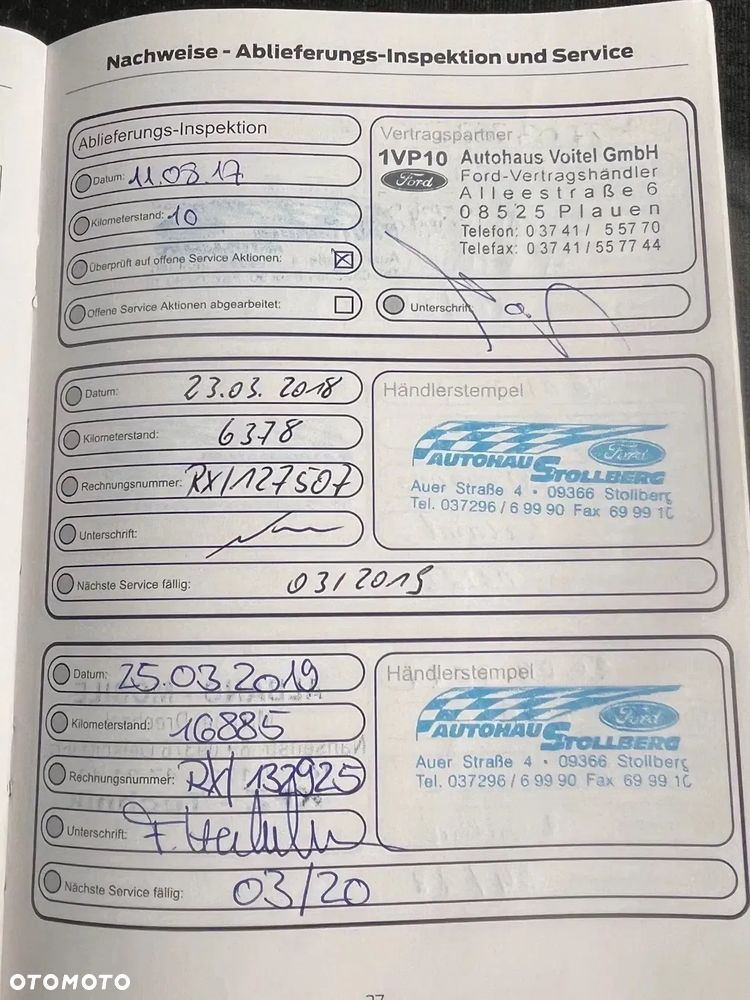 Nachweise - Ablieferungs-Inspektion und Service
Ablieferungs-Inspektion
Datum: 11.08.17
Kilometerstand: 10
Überprüft auf offene Service Aktionen: ☒
Offene Service Aktionen abgearbeitet: ☐
Vertragspartner
1VP10 Autohaus Voitel GmbH
Ford Ford-Vertragshändler
Alleestraße 6
08525 Plauen
Telefon: 0 37 41 / 5 57 70
Telefax: 0 37 41 / 55 77 44
Unterschrift:
Datum: 23.03.2018
Kilometerstand: 6378
Rechnungsnummer: RX/127507
Unterschrift:
Nächste Service fällig: 03/2019
Händlerstempel
Ford
AUTOHAUS STOLLBERG
Auer Straße 4 • 09366 Stollberg
Tel. 037296 / 6 99 90 Fax 69 99 10
Datum: 25.03.2019
Kilometerstand: 16885
Rechnungsnummer: RX/132925
Unterschrift:
Nächste Service fällig: 03/20
Händlerstempel
Ford
AUTOHAUS STOLLBERG
Auer Straße 4 • 09366 Stollberg
Tel. 037296 / 6 99 90 Fax 69 99 10
OTOMOTO